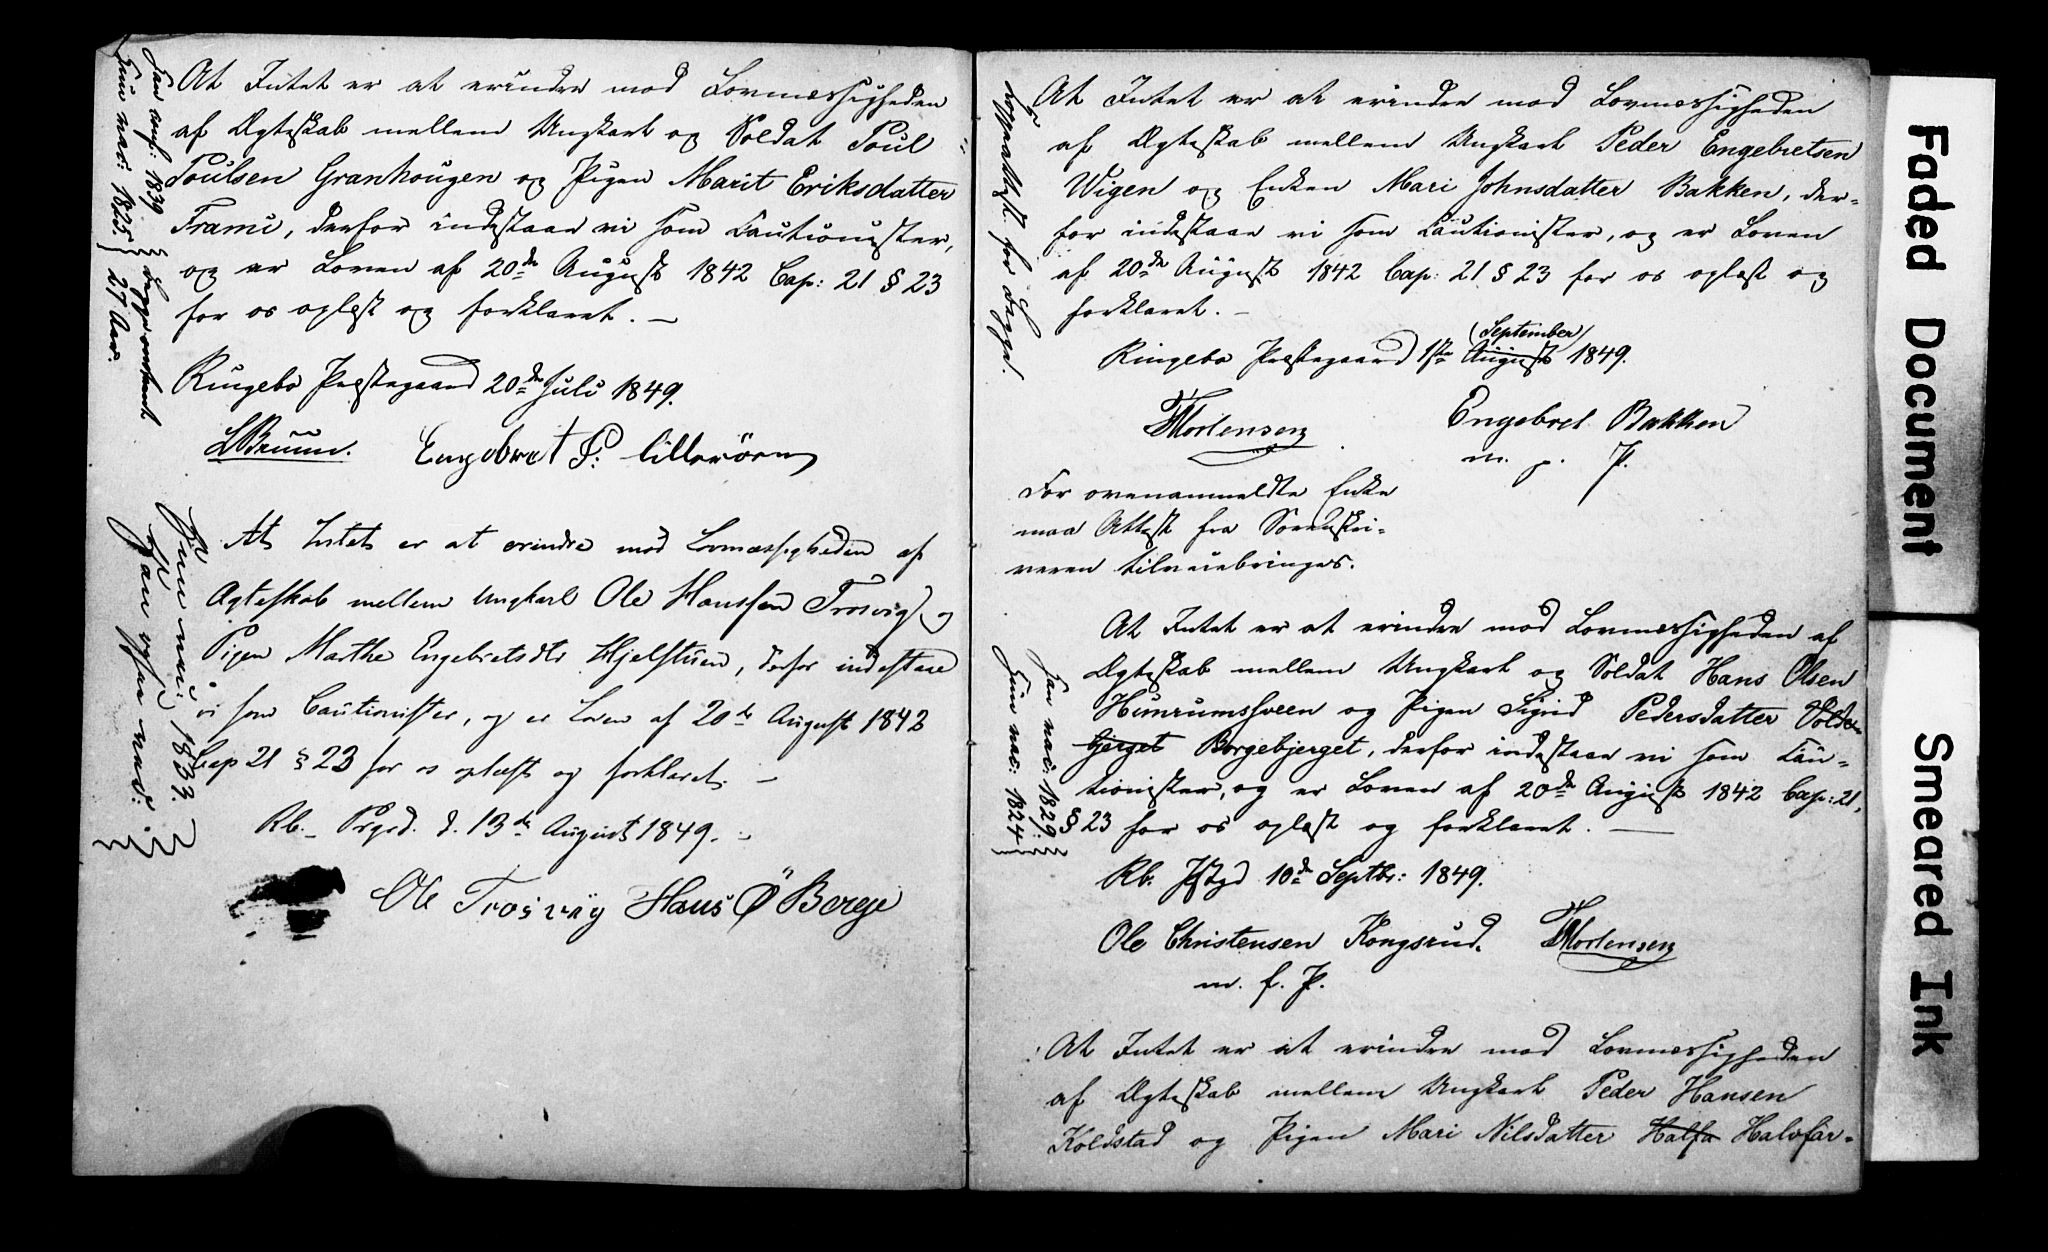 At Intet er at erindre mod Lovmæssigheden
af Ægteskab mellem Ungkarl og Soldat Poul
Poulsen Granhougen og Pigen Marit Eriksdatter
Frami, derfor indestaae vi som Cautionister,
og er Loven af 20de August 1842 Cap: 21 § 23
for os oplæst og forklaret. —
Ringebo Præstegaard 20de Juli 1849.
LBruun. Engebret P: Lilleröen
Han 1839
Hun vac: 1825 27 Aar.
At Intet er at erindre mod Lovmæssigheden af
Ægteskab mellem Ungkarl Ole Hanssen Trosvig og
Pigen Marthe Engebretsdtr Hjelstuen, derfor indestaae
vi som Cautionister, og er Loven af 20de August 1842
Cap 21 § 23 for os oplæst og forklaret. —
Rb. Prgrd. d. 13de August 1849. —
Ole Trosvig Hans Ø Berge
Hun vac: 1833.
Han vac:
At Intet er at erindre mod Lovmæssigheden
af Ægteskab mellem Ungkarl Peder Engebretsen
Wigen og Enken Mari Johnsdatter Bakken, der-
for indestaae vi som Cautionister, og er Loven
af 20de August 1842 Cap: 21 § 23 for os oplæst og
forklaret. —
(September)
Ringebo Præstegaard 1ste August 1849.
TMortensen Engebret Bakken
m. p. P.
for Begge.
For ovenanmeldte Enke
maa Attest fra Sorenskri-
veren tilveiebringes.
At Intet er at erindre mod Lovmæssigheden af
Ægteskab mellem Ungkarl og Soldat Hans Olsen
Hunrumssveen og Pigen Sigrid Pedersdatter Volde
bjerget Borgebjerget, derfor indestaae vi som Cau-
tionister, og er Loven af 20de August 1842 Cap: 21,
§ 23 for os oplæst og forklaret. —
Rb. Pstgd 10de Septbr: 1849.
Ole Christensen Kongsrud. TMortensen
m. f. P.
Han vac: 1829
Hun vac: 1824
At Intet er at erindre mod Lovmæssigheden
af Ægteskab mellem Ungkarl Peder Hansen
Koldstad og Pigen Mari Nilsdatter Halfa Halvfar-
Faded Document
Smeared Ink